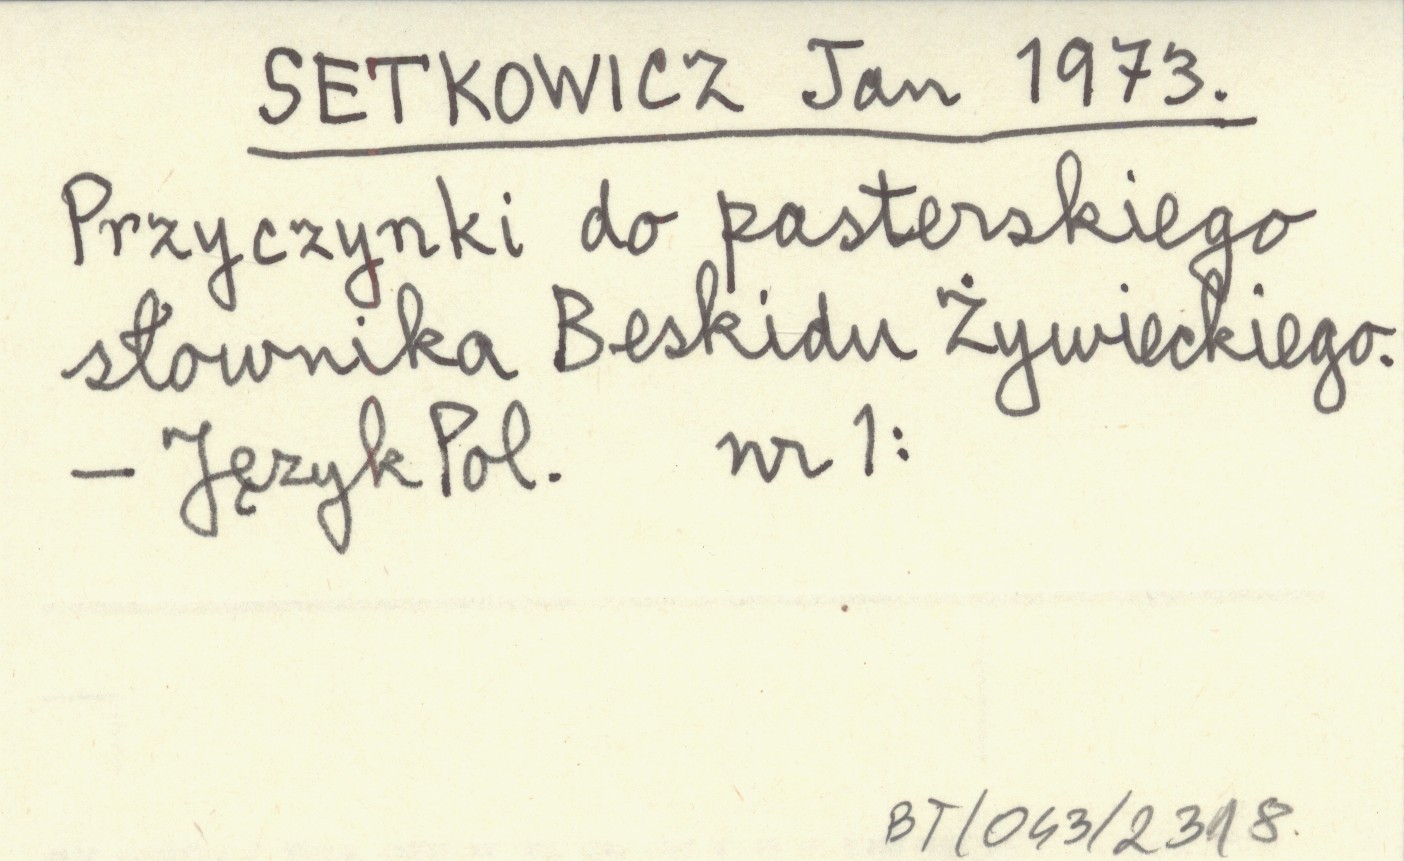 SETKOWICZ Jan 1973.
Przyczynki do pasterskiego
słownika Beskidu Żywieckiego.
– Język Pol. nr 1:
BT/043/2318.